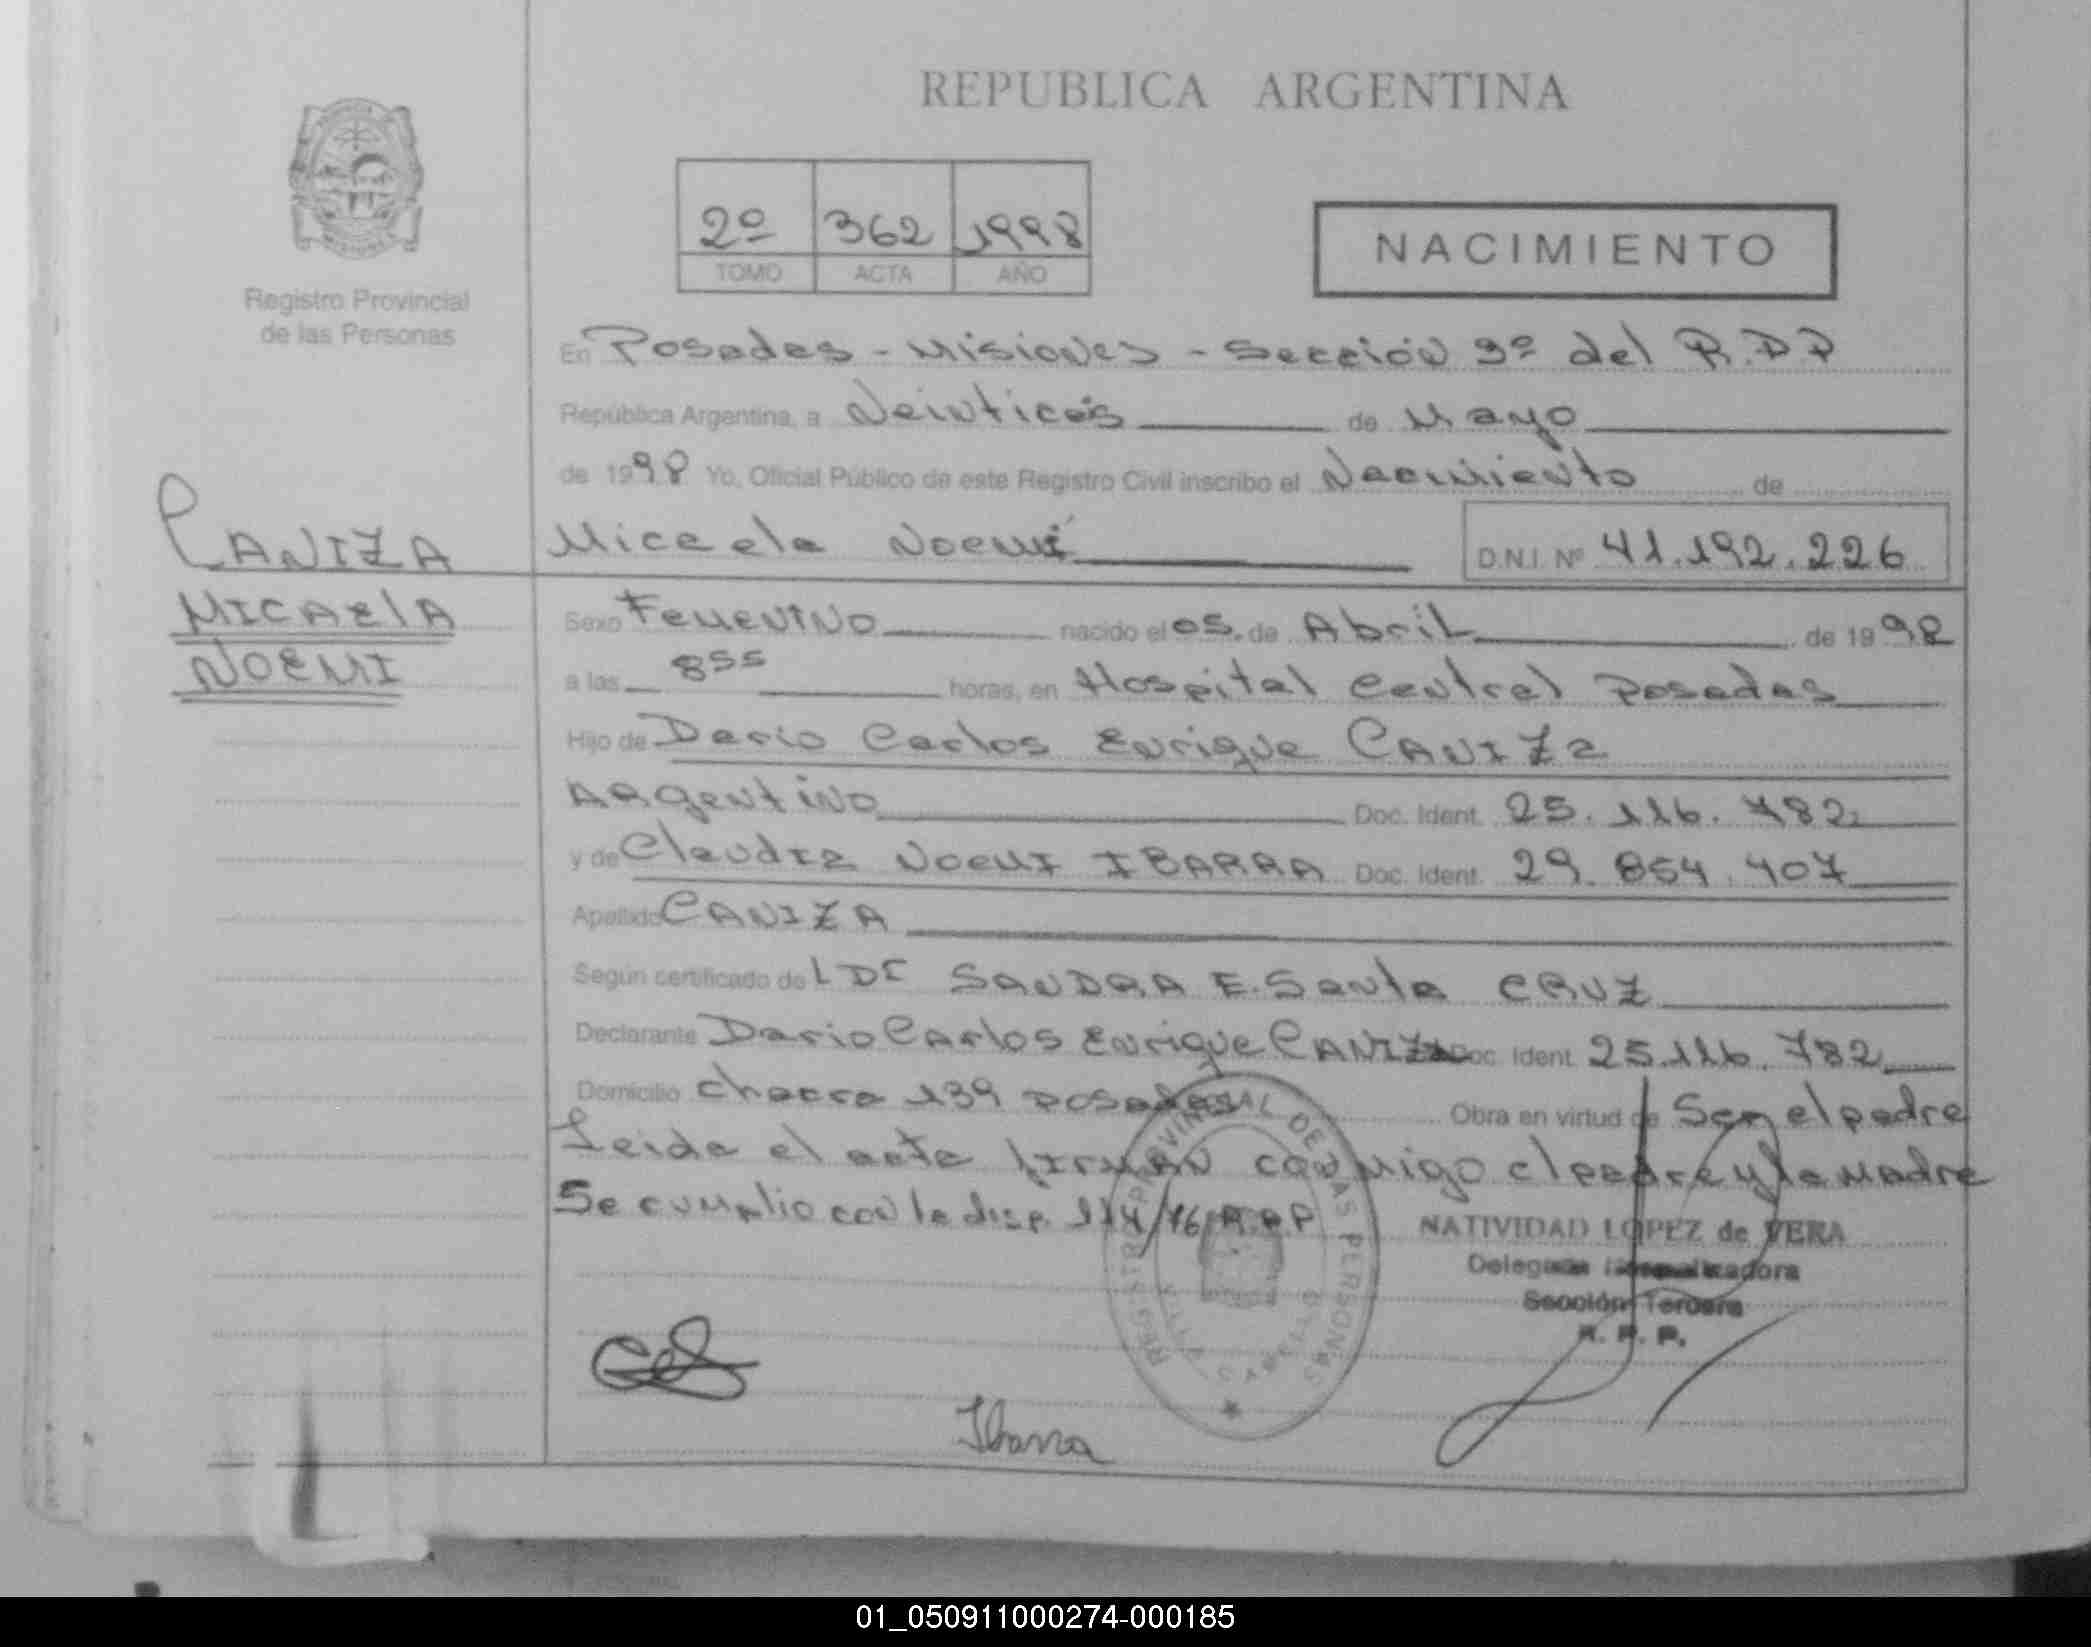 REPUBLICA ARGENTINA
2º 362 1998
TOMO ACTA AÑO
NACIMIENTO
Registro Provincial
de las Personas
En Posadas - Misiones - Sección 3º del R.P.P
República Argentina, a de Mayo
de 1998 Yo, Oficial Público de este Registro Civil inscribo el Nacimiento de
Micaela Noemí D.N.I. Nº 41.192.226
CANIZA
MICAELA
NOEMI
Sexo Femenino nacido el 05 de Abril de 1998
a las 855 horas, en Hospital Central Posadas
Hijo de Dario Carlos Enrique CANIZA
Argentino Doc. Ident. 25.116.782
y de Claudia Noemi IBARRA Doc. Ident. 29.854.407
Apellido CANIZA
Según certificado de SANDRA E. Santa CRUZ
Declarante Dario Carlos Enrique CANIZA Doc. Ident. 25.116.782
Domicilio chacra 139 posadas Obra en virtud de Ser el padre
Leida el acta firman conmigo el padre y la madre
Se cumplio con la disp. 114/96 R.P.P
NATIVIDAD LOPEZ de VERA
Delegada
Sección Tercera
R. P. P.
REGISTRO PROVINCIAL DE LAS PERSONAS
VILLA CABELLO
Ibarra
01_050911000274-000185